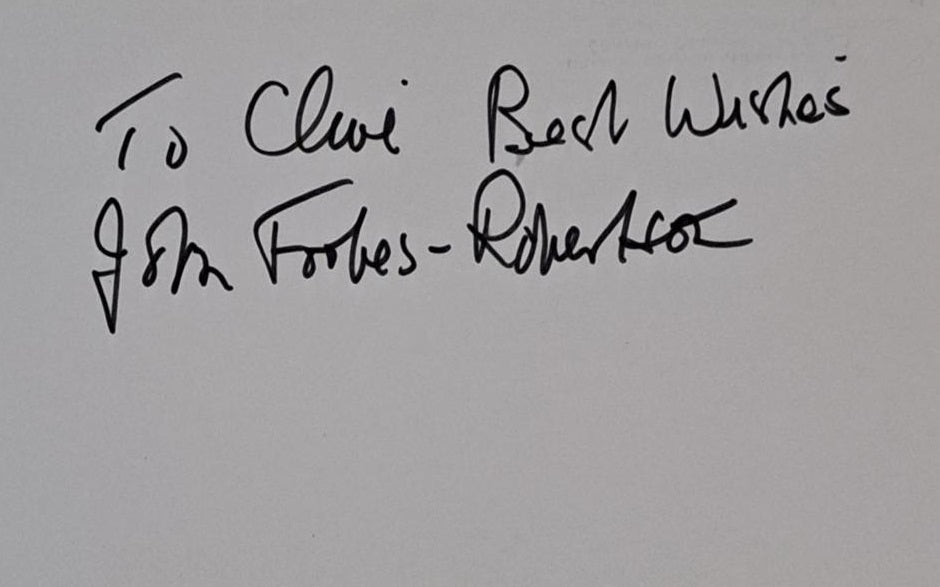 To Clive Best Wishes
John Forbes-Robertson